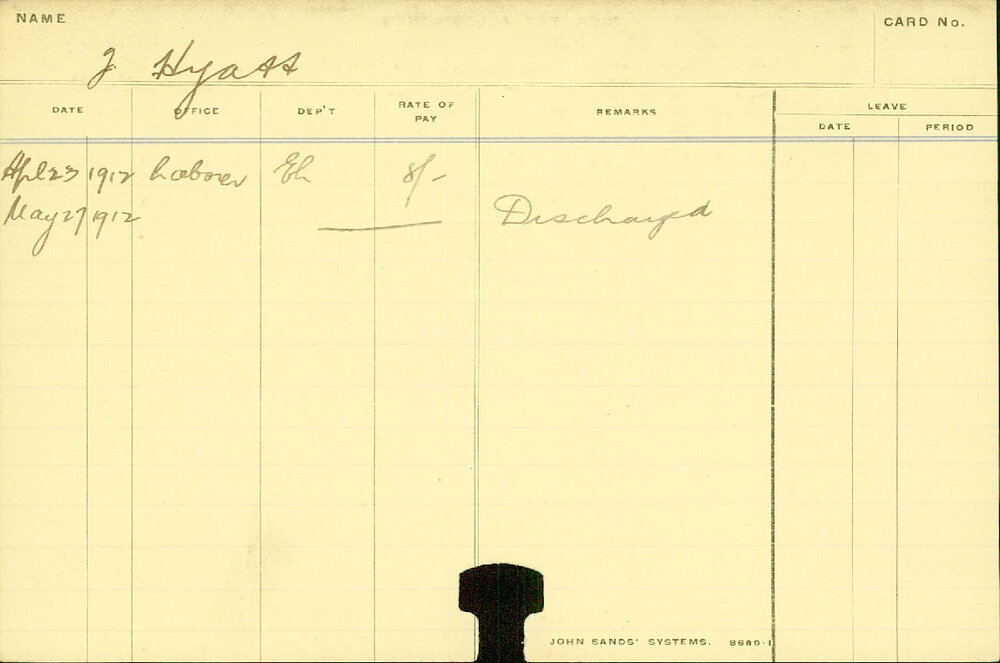 NAME
CARD No.
J Hyatt
DATE OFFICE DEP'T RATE OF PAY REMARKS LEAVE
DATE PERIOD
Apl 23 1912 Laborer Eh 8/-
May 27 1912 Discharged
JOHN SANDS' SYSTEMS. 8689·1